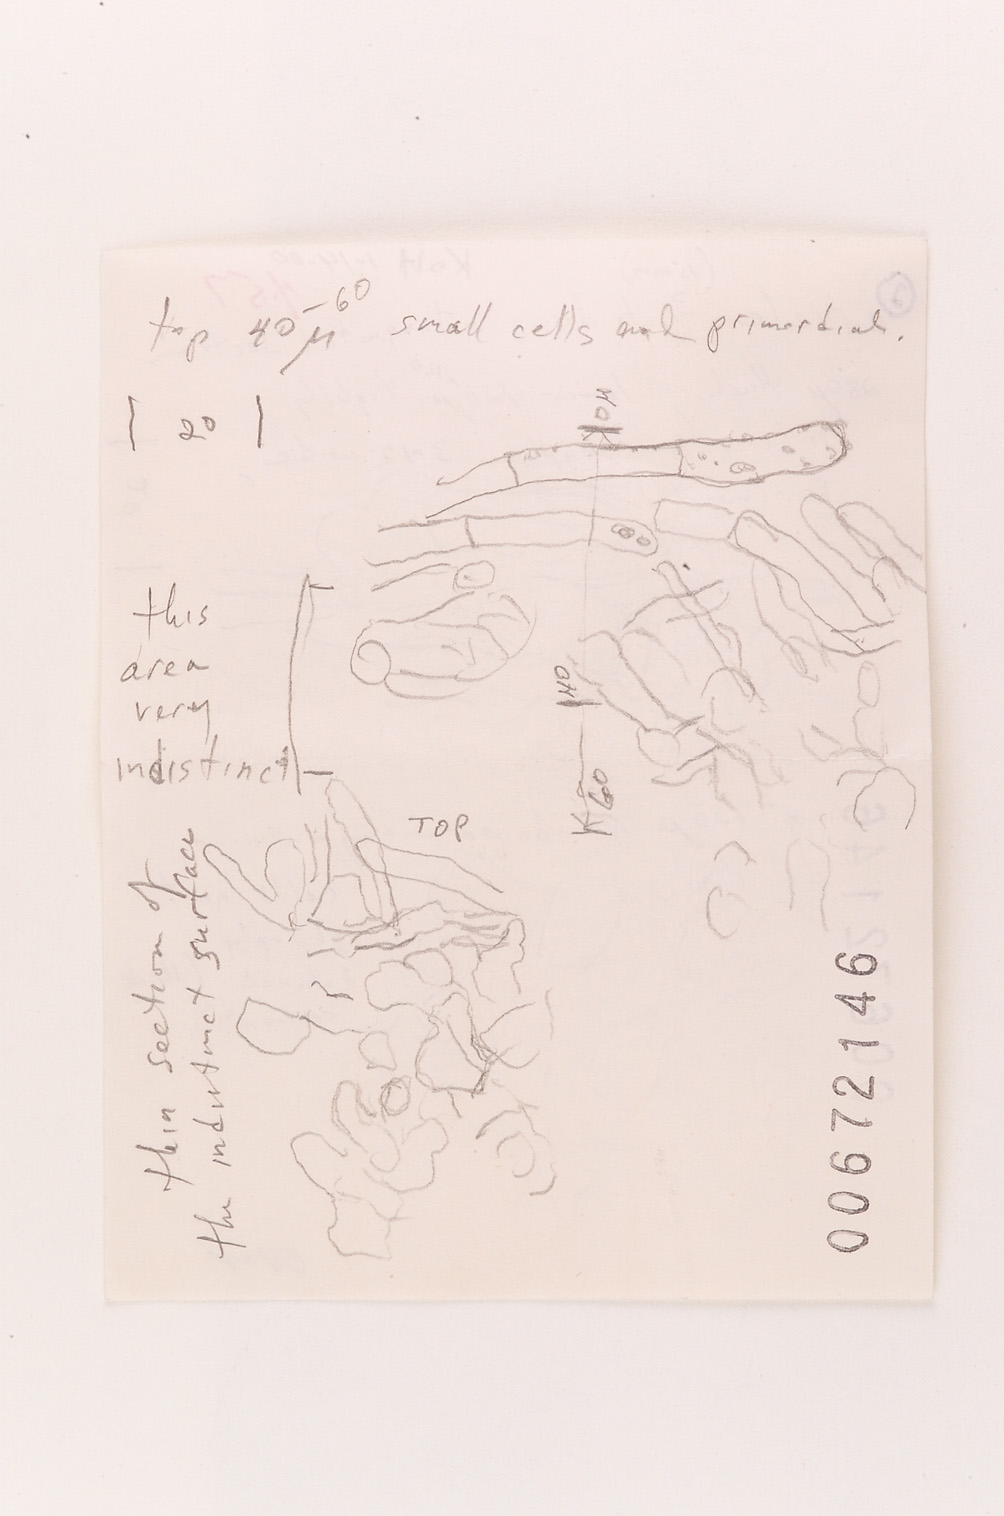 top 40-60 µ small cells and primordial.
20
10 µ
this
area
very
indistinct
140
K 60
TOP
thin section of
the indistinct surface
00672146